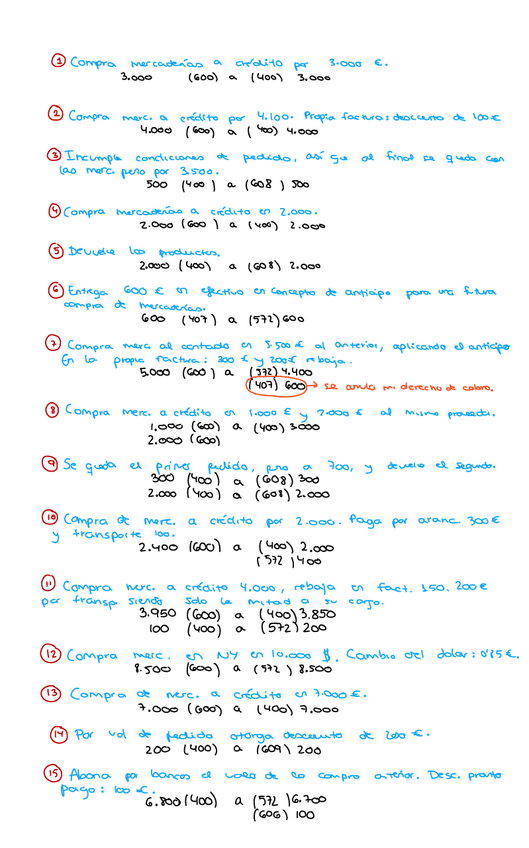 ① Compra mercaderías a crédito por 3.000 €.
3.000 (600) a (400) 3.000
② Compra merc. a crédito por 4.100. Propia factura: descuento de 100€
4.000 (600) a (400) 4.000
③ Incumple condiciones de pedido, así que al final se queda con
las merc. pero por 3.500.
500 (400) a (608) 500
④ Compra mercaderías a crédito en 2.000.
2.000 (600) a (400) 2.000
⑤ Devuelve los productos.
2.000 (400) a (608) 2.000
⑥ Entrega 600 € en efectivo en concepto de anticipo para una futura
compra de mercaderías.
600 (407) a (572) 600
⑦ Compra merc al contado en 5.500€ al anterior, aplicando el anticipo
En la propia factura: 300 € y 200€ rebaja.
5.000 (600) a (572) 4.400
(407) 600 → se anula mi derecho de cobro.
⑧ Compra merc. a crédito en 1.000 € y 2.000 € al mismo proveedor.
1.000 (600) a (400) 3000
2.000 (600)
⑨ Se queda el primer pedido, pero a 700, y devuelve el segundo.
300 (400) a (608) 300
2.000 (400) a (608) 2.000
⑩ Compra de merc. a crédito por 2.000. Paga por aranc. 300€
y transporte 100.
2.400 (600) a (400) 2.000
(572) 400
⑪ Compra merc. a crédito 4.000, rebaja en fact. 150. 200€
por transp siendo solo la mitad a su cargo.
3.950 (600) a (400) 3.850
100 (400) a (572) 200
⑫ Compra merc. en NY en 10.000 $. Cambio del dolar: 0'85 €.
8.500 (600) a (572) 8.500
⑬ Compra de merc. a crédito en 7.000 €.
7.000 (600) a (400) 7.000
⑭ Por vol de pedido otorga descuento de 200 €.
200 (400) a (609) 200
⑮ Abona por bancos el valor de la compra anterior. Desc. pronto
pago: 100 €.
6.800 (400) a (572) 6.700
(606) 100